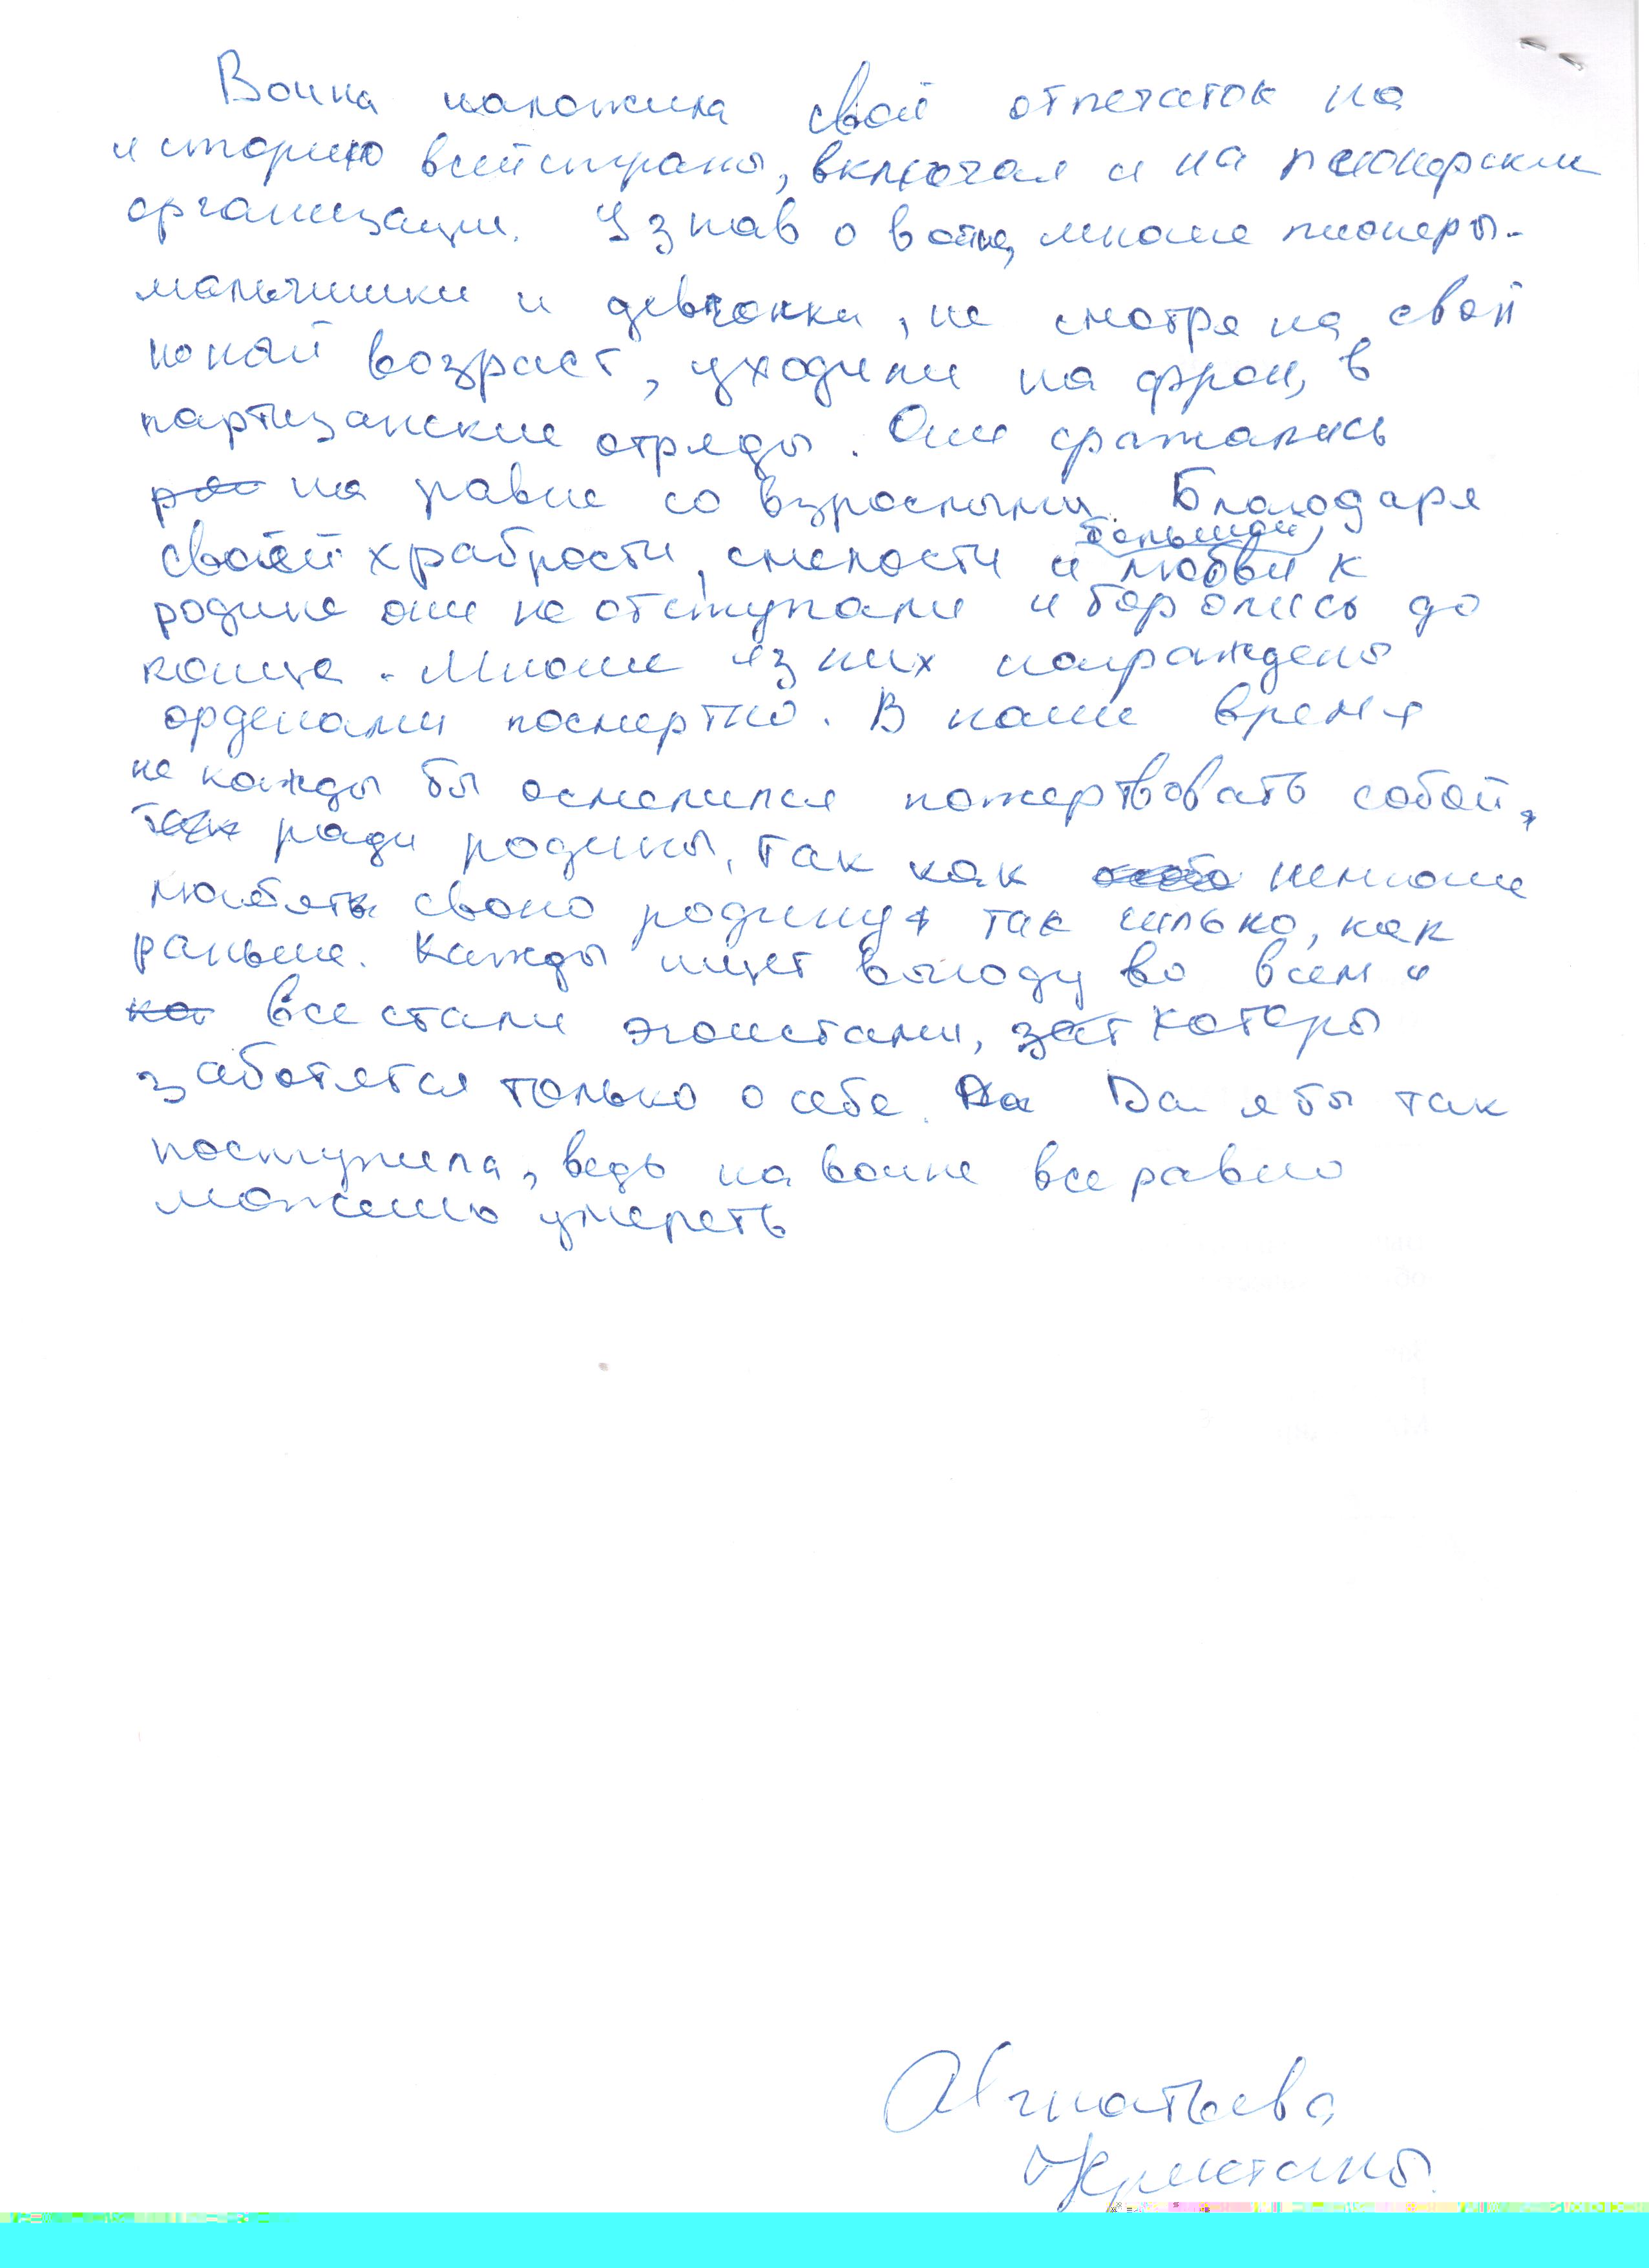 Воина наложила свой отпечаток на
историю всей страны, включая и на пионерским
организации. Узнав о войне, многие пионеры-
мальчишки и девчонки, не смотря на свой
юный возраст, уходили на фрон, в
партизанские отряды. Они сражались
на равне со взрослыми. Благодаря
своей храбрости, смелости и большой
любви к
родине они не отступали и боролись до
конца. Многие из них награждены
орденами посмертно. В наше время
не кажды бы осмелился пожертвовать собой,
ради родины, так как немногие
любять свою родину так сильно, как
раньше. Кажды ищет выгоду во всем и
все стали эгоистами, которы
заботятся только о себе. Да я бы так
поступила, ведь на воине все равно
можешь умереть